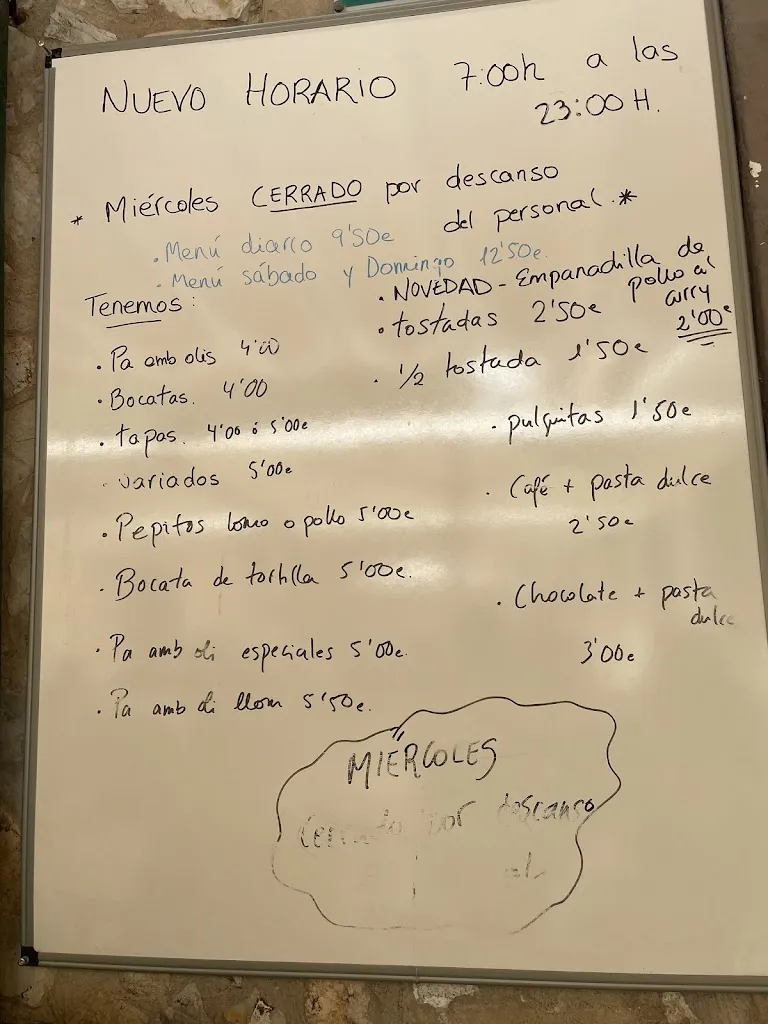 NUEVO HORARIO 7:00h a las
23:00 H.
* Miércoles CERRADO por descanso
del personal.*
. Menú diario 9'50e
. Menú sábado y Domingo 12'50e.
Tenemos:
. Pa amb olis 4'00
. Bocatas. 4'00
. tapas. 4'00 ó 5'00e
. variados 5'00e
. Pepitos lomo o pollo 5'00e
. Bocata de tortilla 5'00e.
. Pa amb oli especiales 5'00e.
. Pa amb oli llom 5'50e.
. NOVEDAD - Empanadilla de
pollo al
curry
2'00e
. tostadas 2'50e
. 1/2 tostada 1'50e
. pulguitas 1'50e
. Café + pasta dulce
2'50e
. Chocolate + pasta
dulce
3'00e
MIÉRCOLES
Cerrado por descanso